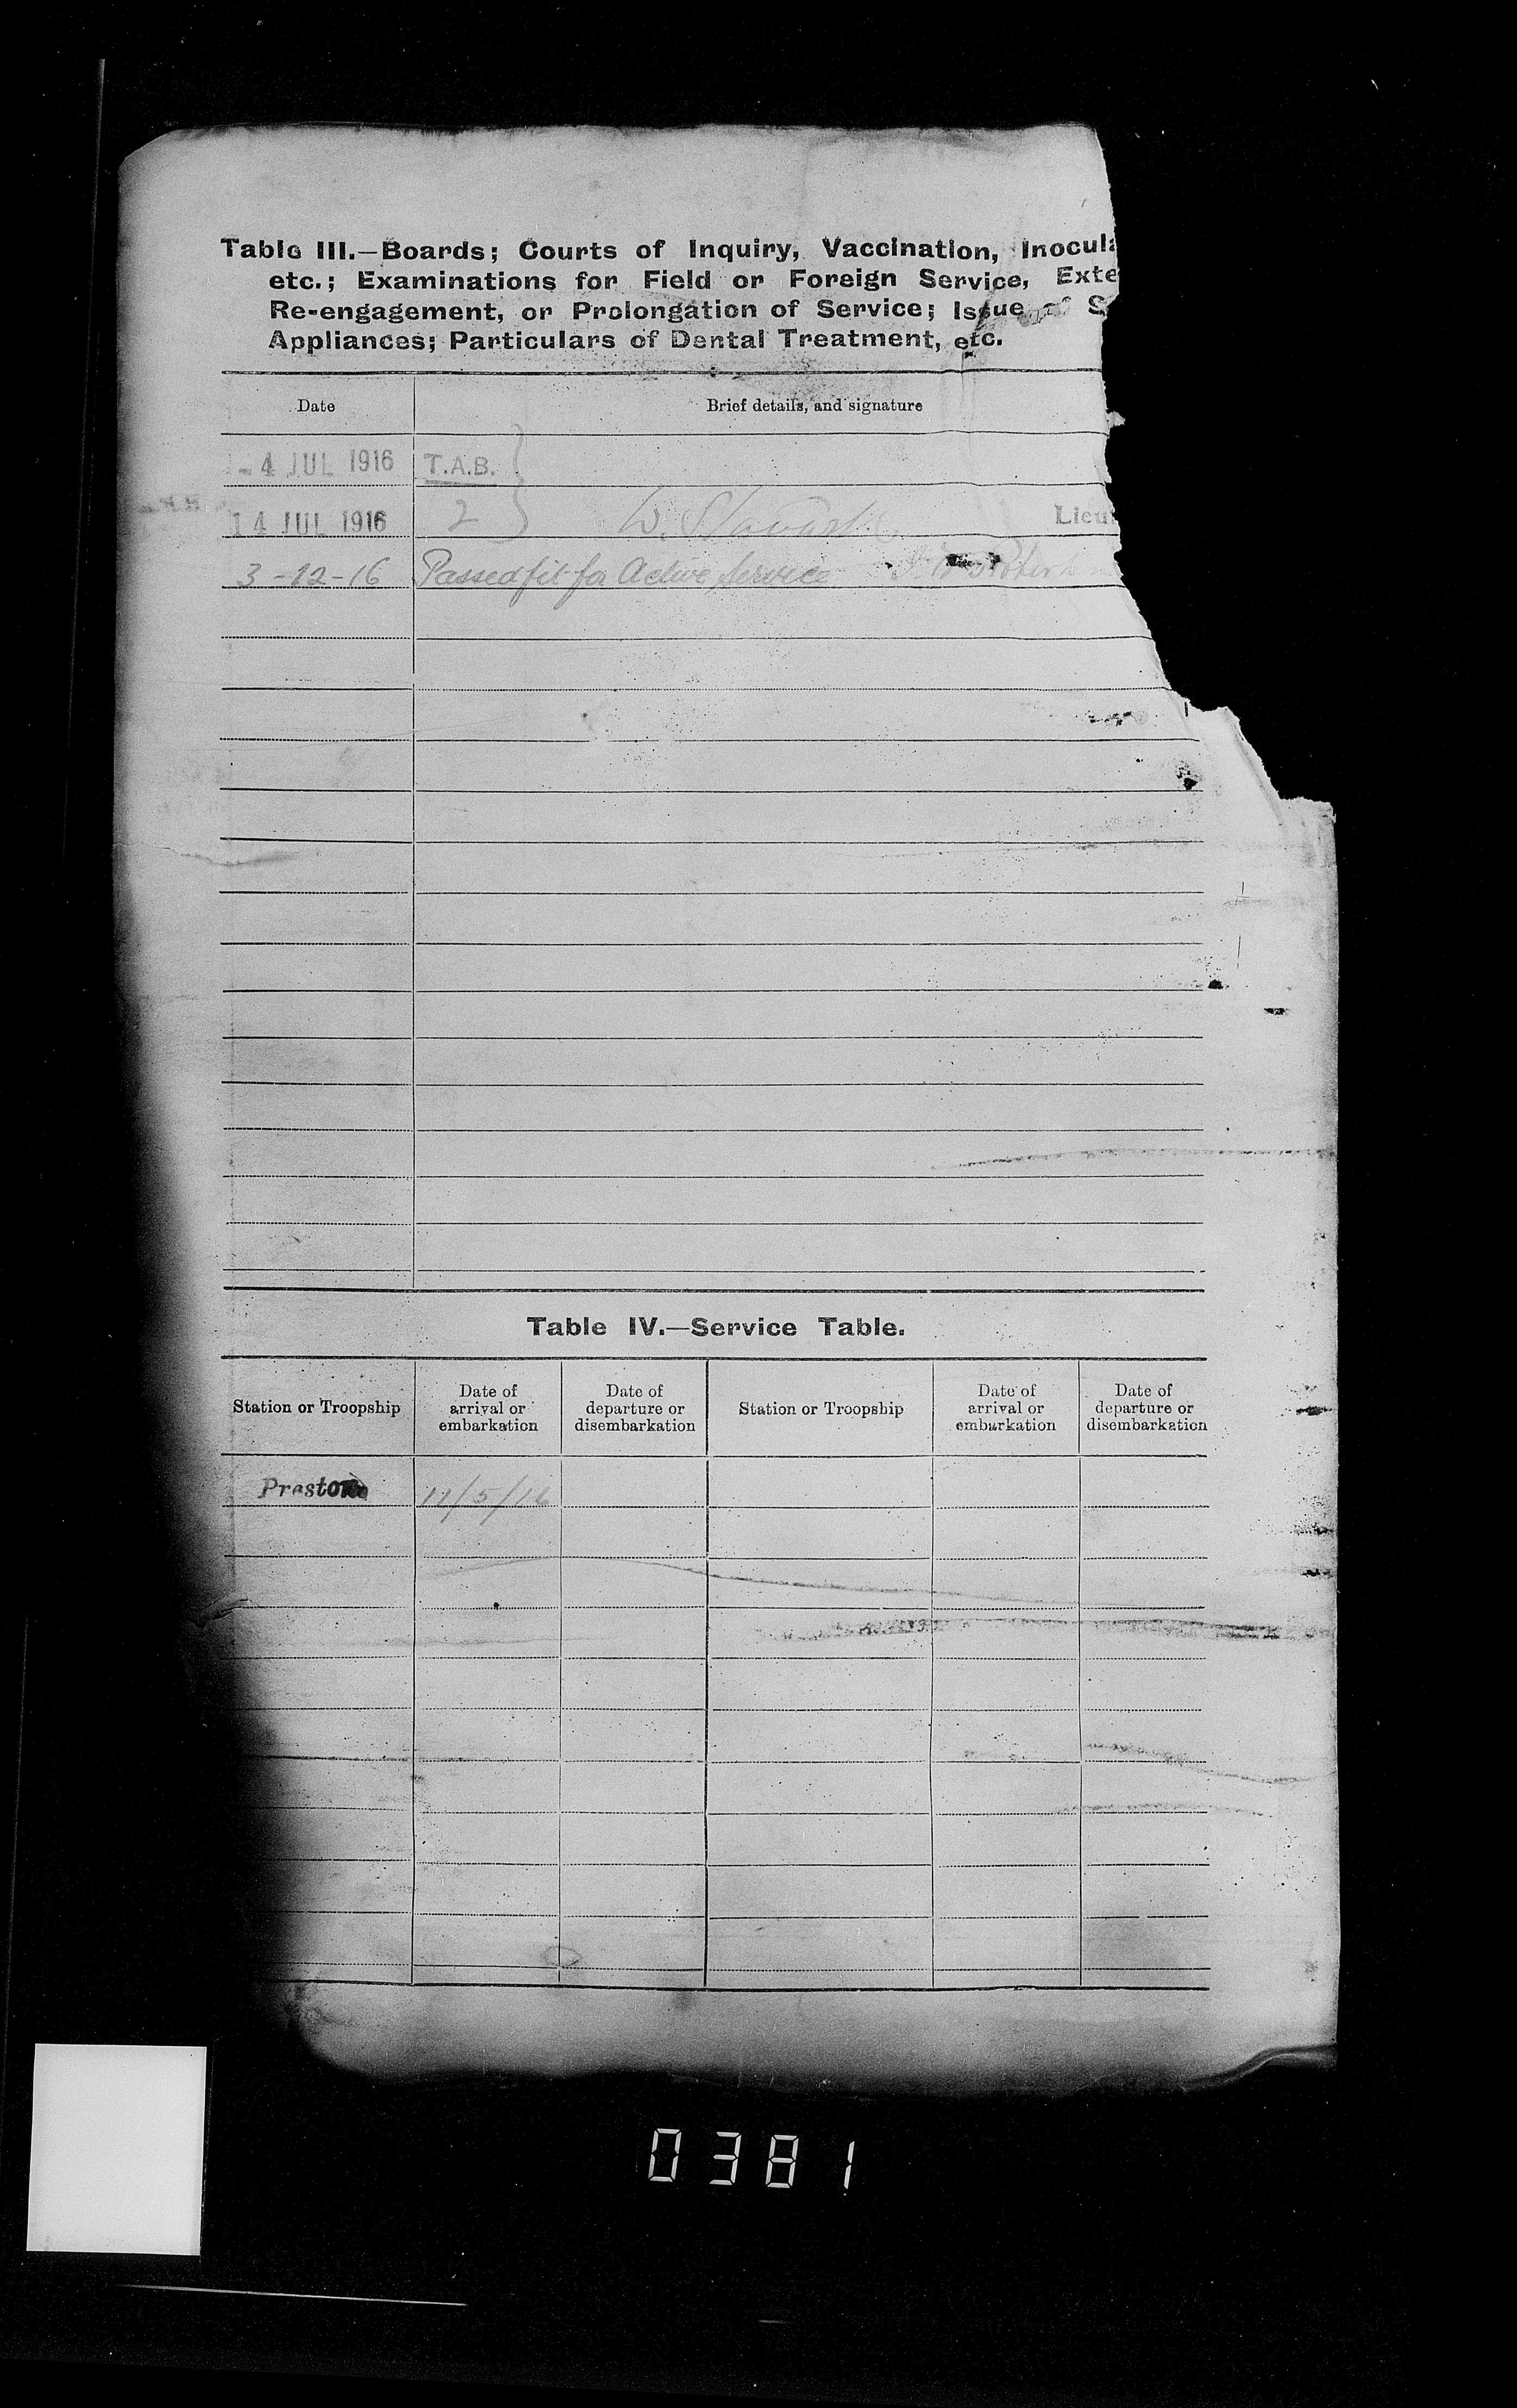 Table III.—Boards; Courts of Inquiry, Vaccination, Inocula
etc.; Examinations for Field or Foreign Service, Exte
Re-engagement, or Prolongation of Service; Issue of S
Appliances; Particulars of Dental Treatment, etc.
Date Brief details, and signature
- 4 JUL 1916 T.A.B.
14 JUL 1916 2 W. Lieut
3-12-16 Passed fit for Active Service
Table IV.—Service Table.
Station or Troopship Date of arrival or embarkation Date of departure or disembarkation Station or Troopship Date of arrival or embarkation Date of departure or disembarkation
Preston 11/5/16
0381